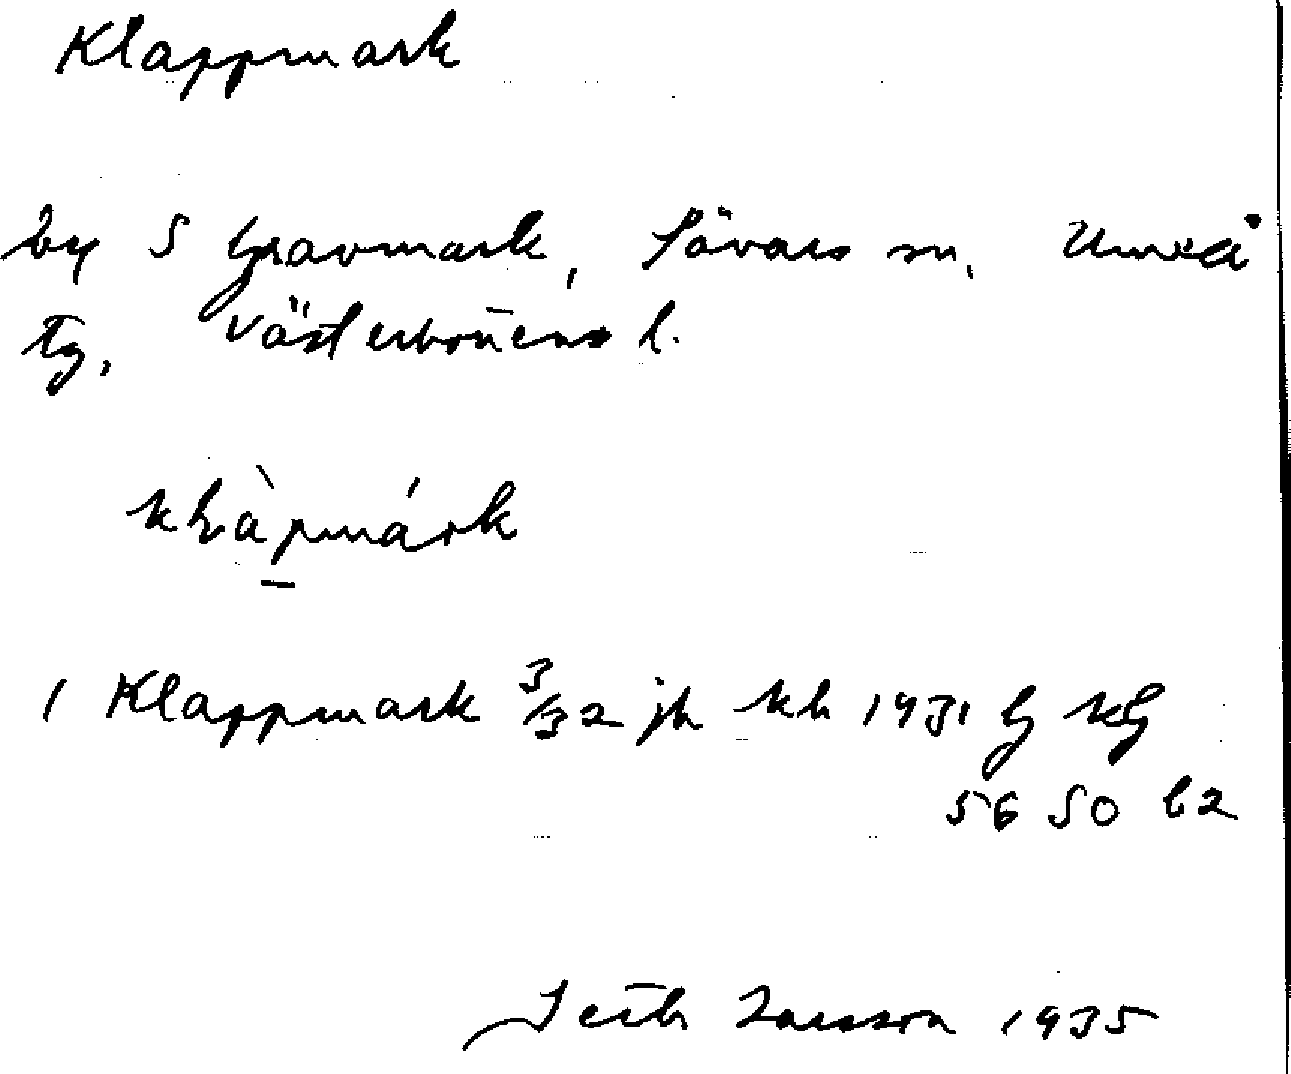 Klappmark
by S Gravmark, Sävars sn, Umeå
tg, Västerbottens l.
klàpmárk
1 Klappmark 3/32 jb kb 1931 G kG
56 SO b2
Larsson 1935